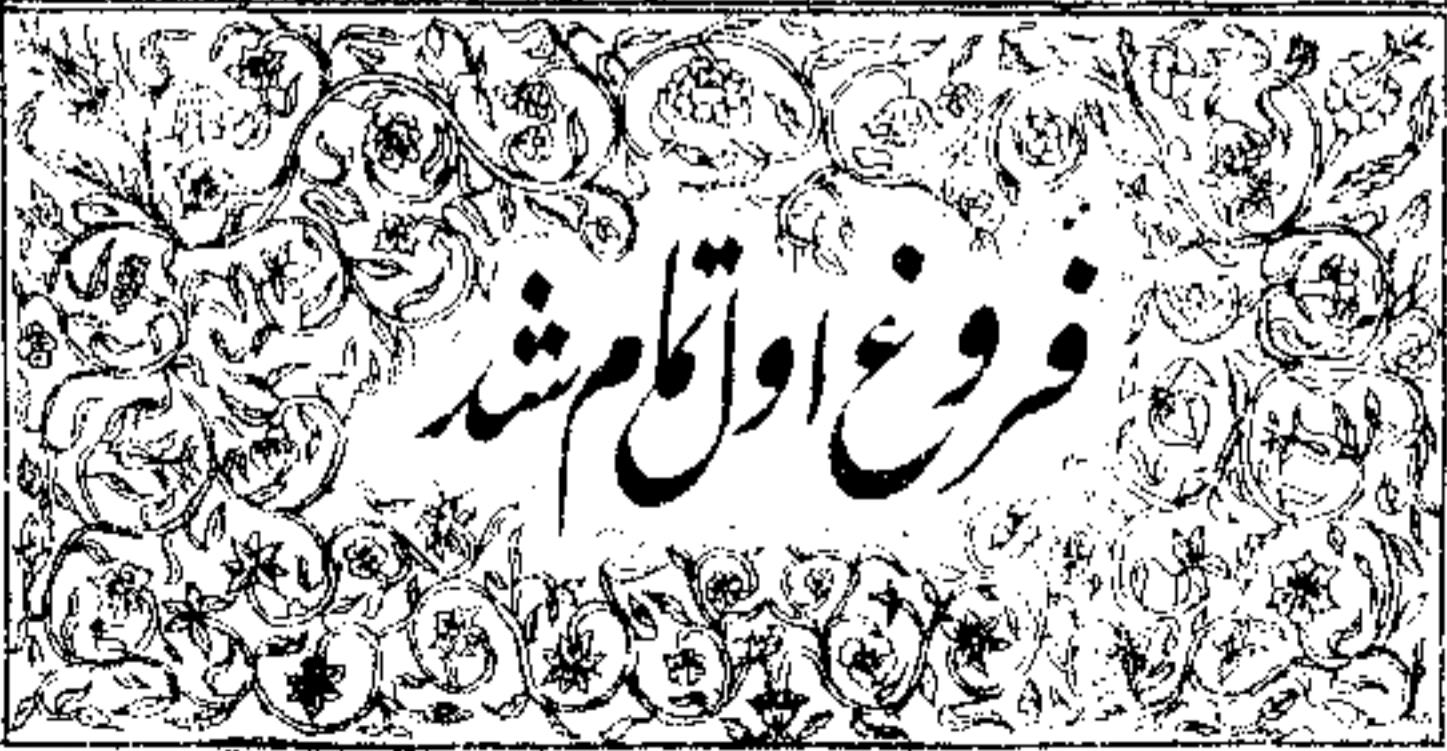 فروغ اول تمام شد